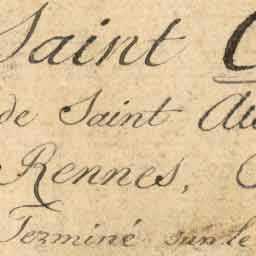 Saint
de Saint
Rennes,
Terminé sur le